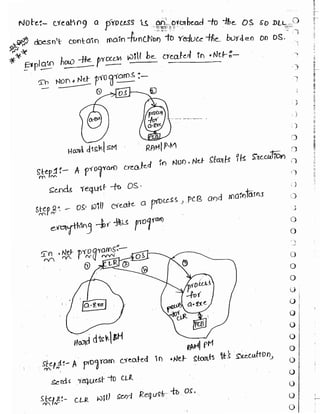 Note:- creating a process is an overhead to the OS so DLL
doesn't contain main function to reduce the burden on OS.
Explain how the process will be created in .Net:-
In Non .Net programs:-
① OS ②
a.exe
process
for
a.exe
PCB
Hard disk|SM RAM|PM
Step1:- A program created in Non .Net starts its Execution
sends request to OS.
Step2:- OS will create a process, PCB and maintains
everything for this program
In .Net programs:-
① CLR ② OS ③
④
a.exe
process
for
a.exe
process
for
CLR
PCB
Hard disk|SM
RAM|PM
Step1:- A program created in .Net starts it's Execution,
sends request to CLR
Step2:- CLR will send Request to OS.